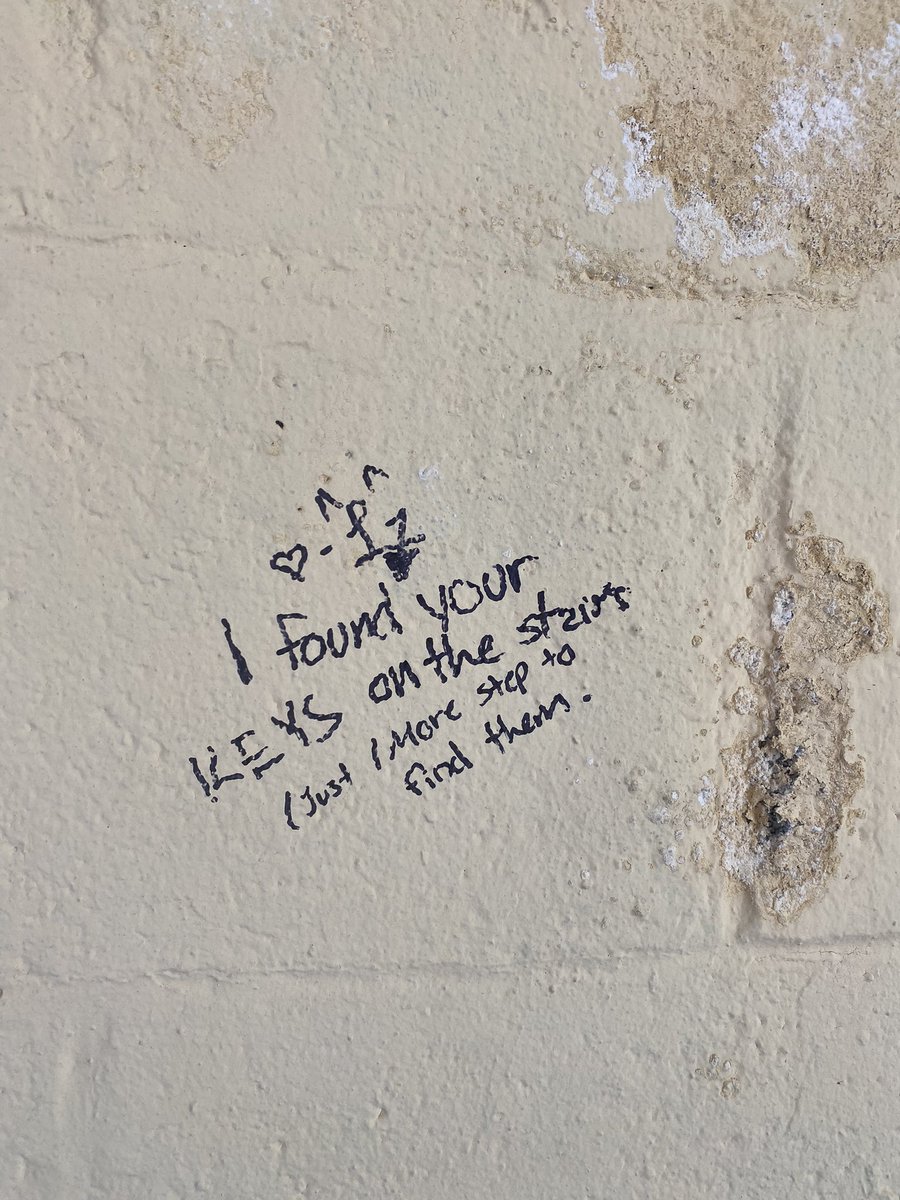 I found your
KEYS on the stairs
(Just 1 More step to
find them.